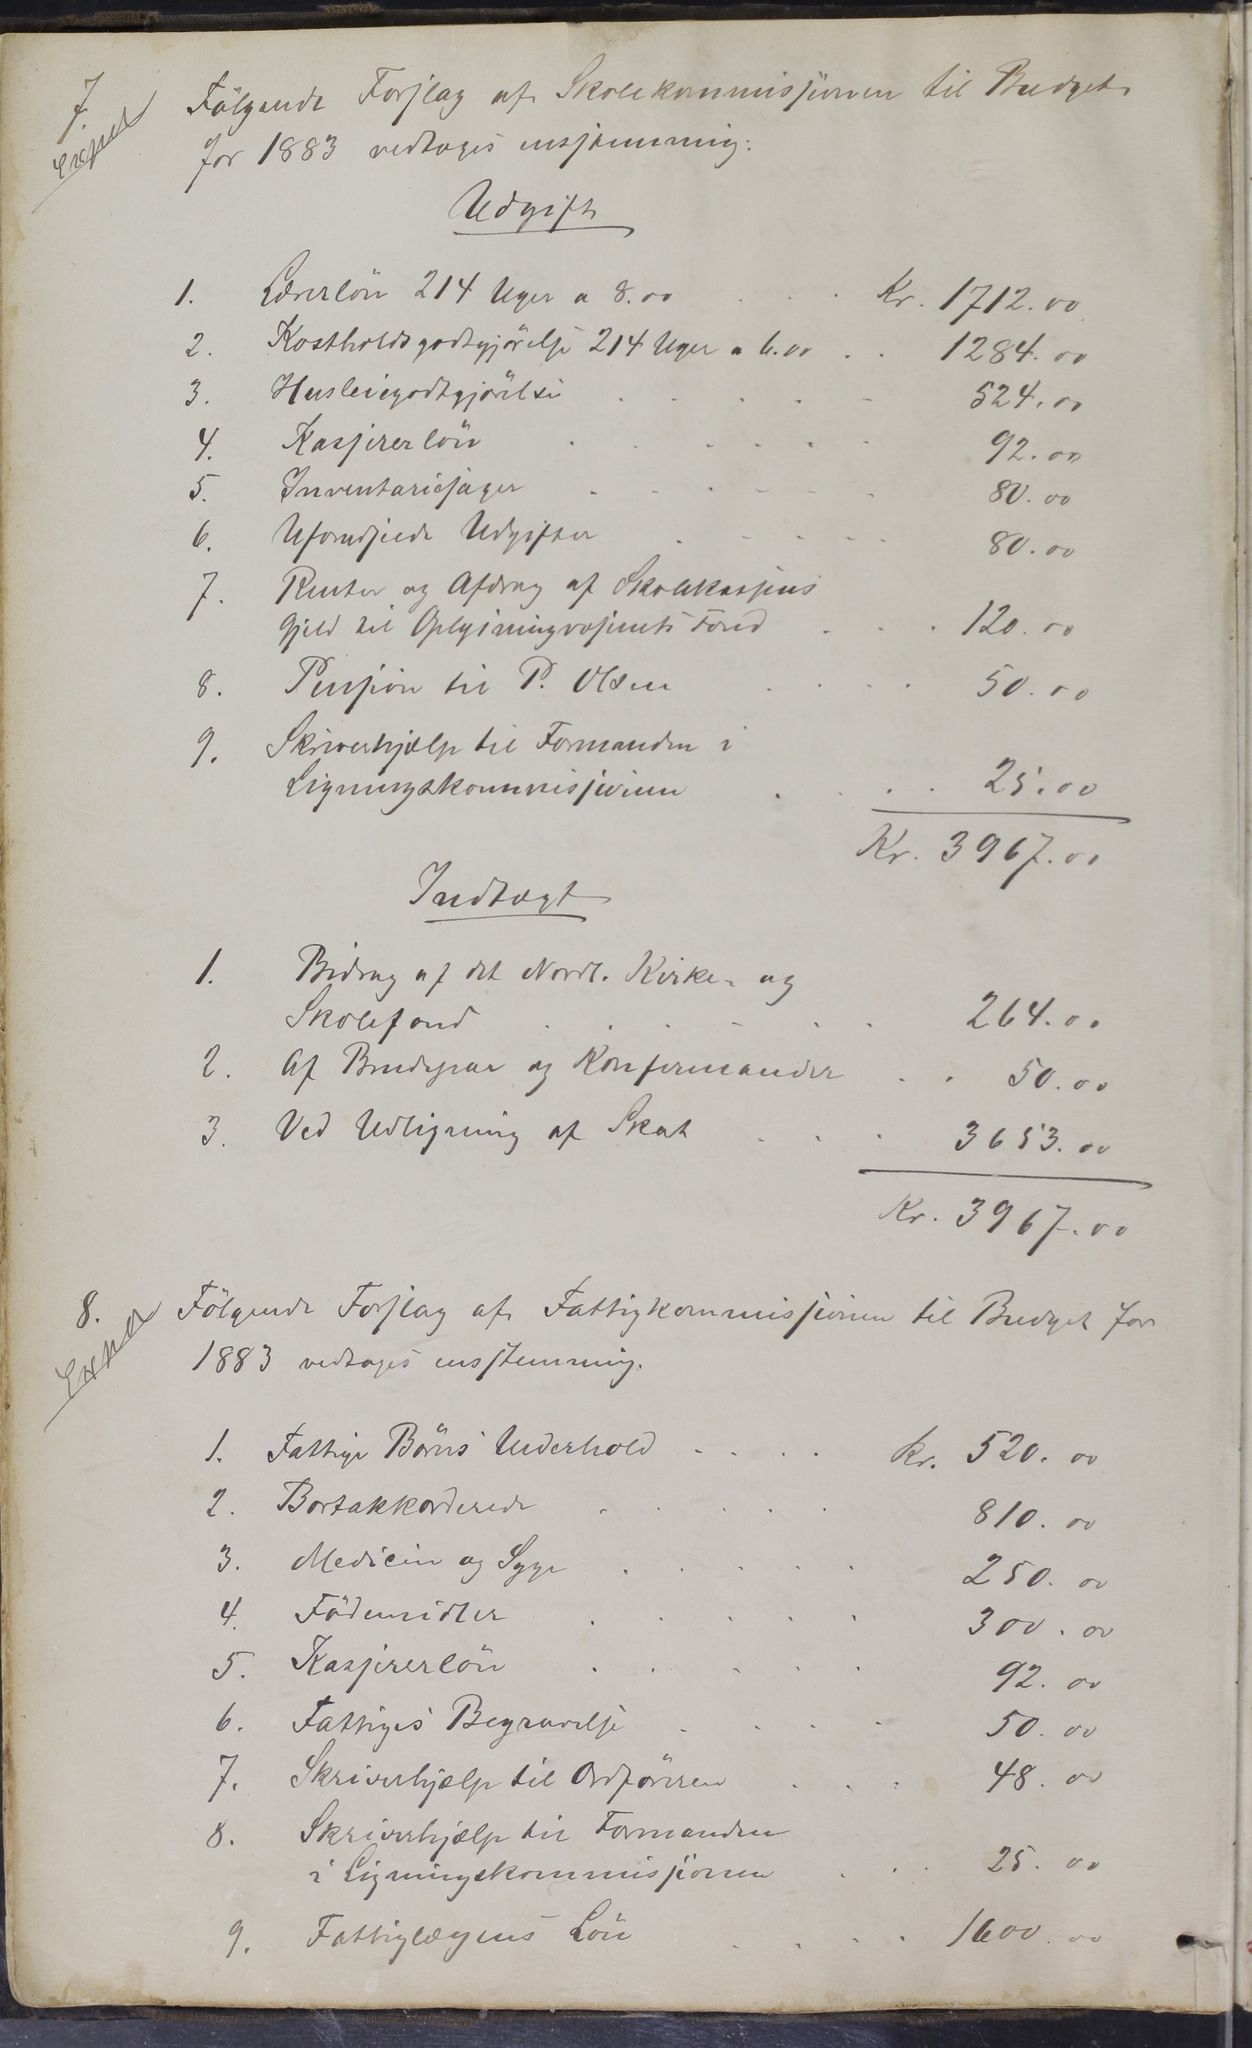 7. Følgende Forslag af Skolekommissionen til Budget
Exped
for 1883 vedtoges enstemmig:
Udgift
1. Lærerløn 214 Uger a 8.00 . . . Kr. 1712.00
2. Kostholdsgodtgjørelse 214 Uger a 6.00 . . 1284.00
3. Husleiegodtgjørelse . . . . . 524.00
4. Kasserer løn . . . . . . 92.00
5. Inventariesager . . . . . . 80.00
6. Uforudseede Udgifter . . . . . 80.00
7. Renter og Afdrag af Skolekassens
Gjeld til Oplysningvæsenets Fond . . . 120.00
8. Pension til P. Olsen . . . . 50.00
9. Skriverhjælp til Formanden i
Ligningskommissionen . . . . 25.00
Kr. 3967.00
Indtægt
1. Bidrag af det Nordl. Kirke- og
Skolefond . . . . . . 264.00
2. Af Brudepar og Konfirmander . . 50.00
3. Ved Udligning af Skat . . . 3653.00
Kr. 3967.00
8. Følgende Forslag af Fattigkommissionen til Budget for
Exped
1883 vedtoges enstemmig.
1. Fattige Børns Underhold . . . . Kr. 520.00
2. Bortakkorderede . . . . . 810.00
3. Medicin og Syge . . . . . 250.00
4. Fødemidler . . . . . 300.00
5. Kasserer løn . . . . . 92.00
6. Fattiges Begravelse . . . . 50.00
7. Skriverhjælp til Ordføreren . . . 48.00
8. Skriverhjælp til Formanden
i Ligningskommissionen . . . 25.00
9. Fattiglægens Løn . . . . 1600.00